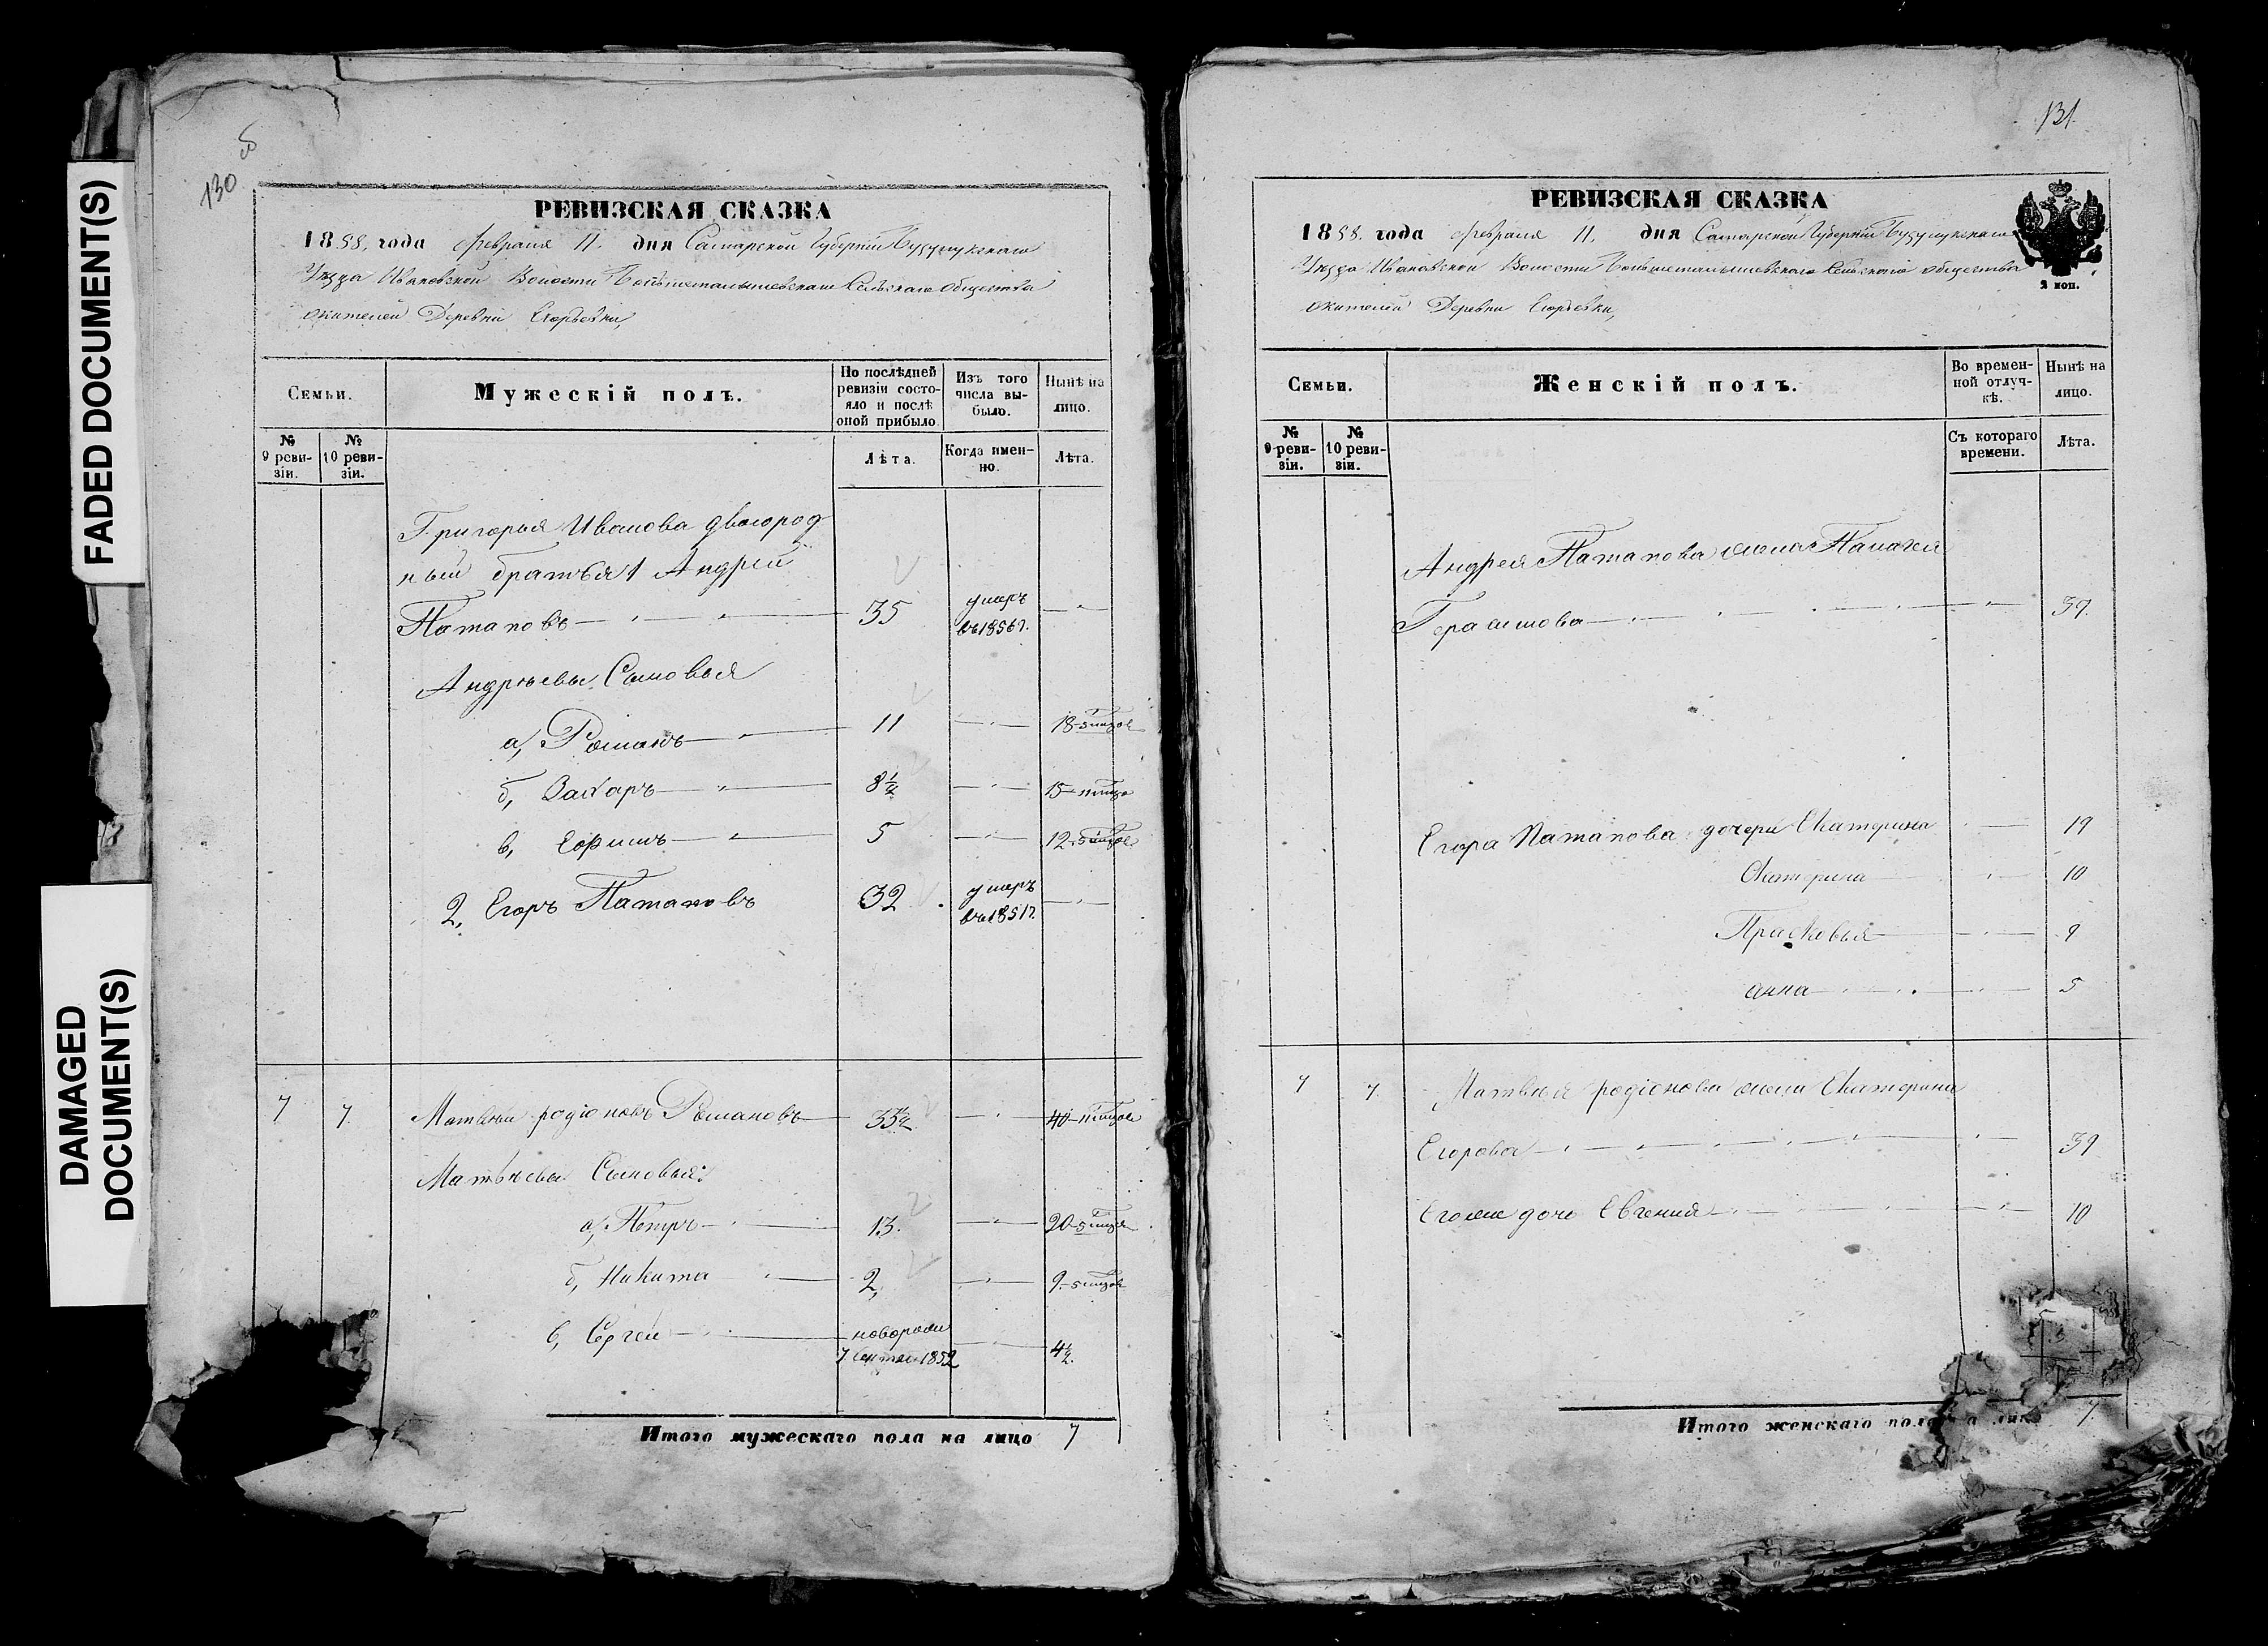 FADED DOCUMENT(S)
DAMAGED
DOCUMENT(S)
130
об
РЕВИЗСКАЯ СКАЗКА
1858. года февраля 11. дня Самарской Губернiи Бузулукскаго
Уѣзда Ивановской Волости Сельскаго общества
жителей Деревни Егорьевки,
Семьи.
Мужескiй полъ.
По послѣдней
ревизiи состо-
яло и послѣ
оной прибыло
Изъ того
числа вы-
было.
Нынѣ на
лицо.
№
9 реви-
зiи.
№
10 реви-
зiи.
Лѣта.
Когда имен-
но.
Лѣта.
Григорья Иванова двоюрод
ный братья 1 Андрей
Патаповъ 35 умеръ
въ 1856 г.
Андрѣевы Сыновья
а, Романъ 11 18
б, Захаръ 8½ 15
в, Ефимъ 5 12
2, Егоръ Патаповъ 32 умеръ
въ 1851 г.
7 7. Матвѣй родiоновъ Романовъ 33½ 40
Матвѣевы Сыновья:
а, Петръ 13. 20
б, Никита 2, 9
в, Сергей новорож 4½.
7. Сентяб 1852
Итого мужескаго пола на лицо 7
131
РЕВИЗСКАЯ СКАЗКА
1858. года февраля 11. дня Самарской Губернiи Бузулукскаго
Уѣзда Ивановской Волости Сельскаго общества
жителей Деревни Егорьевки,
2 коп.
Семьи.
Женскiй полъ.
Во времен-
ной отлуч-
кѣ.
Нынѣ на
лицо.
№
9 реви-
зiи.
№
10 реви-
зiи.
Съ котораго
времени.
Лѣта.
Андрея Патапова жена Палагея
Герасимова 39.
Егора Патапова дочери Екатерина 19
Екатерина 10
Прасковья 9
анна 5
7 7. Матвѣя родiонова жена Екатерина
Егорова 39
Егоже дочь Евгения 10
Итого женскаго пола на лицо 7.